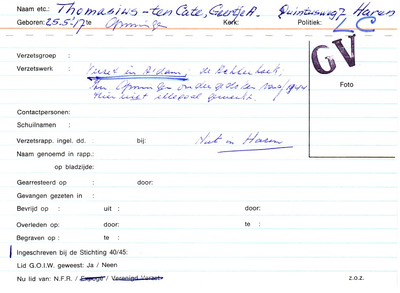 Naam etc.: Thomasius-ten Cate, Geertje A. Quintusweg 2 Haren
Geboren: 25.5.17 te Groningen Kerk: Politiek: 2 C
GV
Verzetsgroep :
Verzetswerk : Verzet in A'dam,
In Groningen ondergedoken 1944
Hier niet illegaal gewerkt.
Foto
Contactpersonen:
Schuilnaam :
Verzetsrapp. ingel. dd. : bij: Nut in Haren
Naam genoemd in rapp.:
op bladzijde:
Gearresteerd op : door:
Gevangen gezeten in :
Bevrijd op : uit : door:
Overleden op: door: te :
Begraven op : te :
Ingeschreven bij de Stichting 40/45:
Lid G.O.I.W. geweest: Ja / Neen
Nu lid van: N.F.R. / Expogé / Verenigd Verzet. z.o.z.